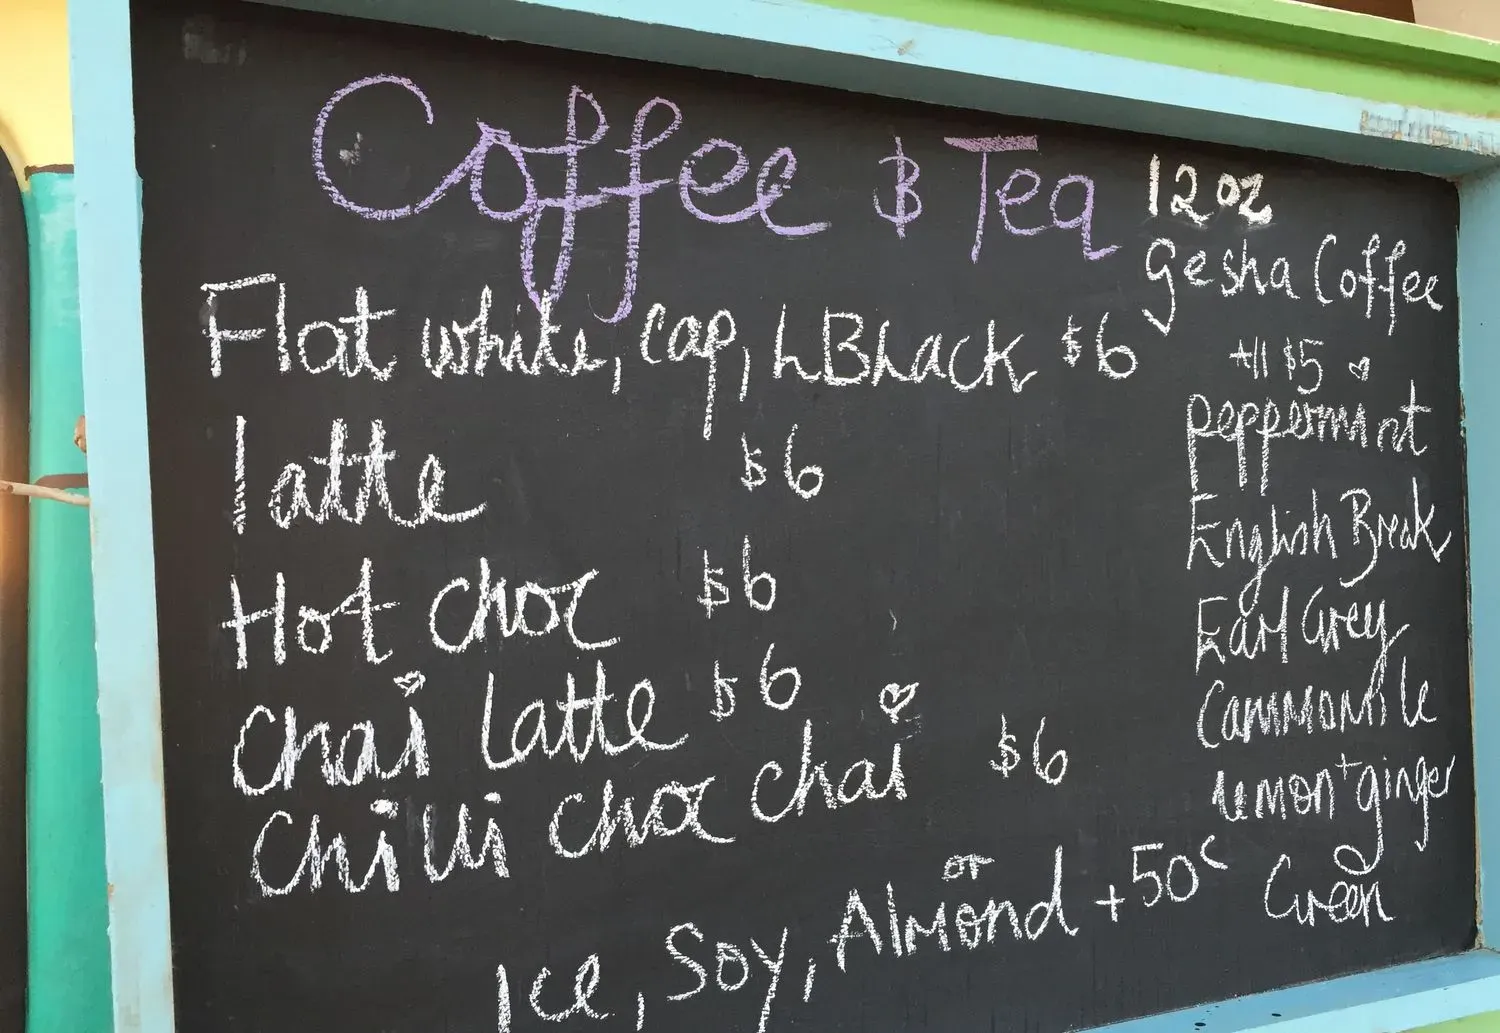 Coffee & Tea
12oz
Gesha Coffee
Flat white, cap, LBLack $6
latte $6
Hot choc $6
Chai Latte $6
Chilli choc chai $6
Ice, Soy, or Almond +50c
All $5
peppermint
English Break
Earl Grey
Cammomile
lemon + ginger
Green